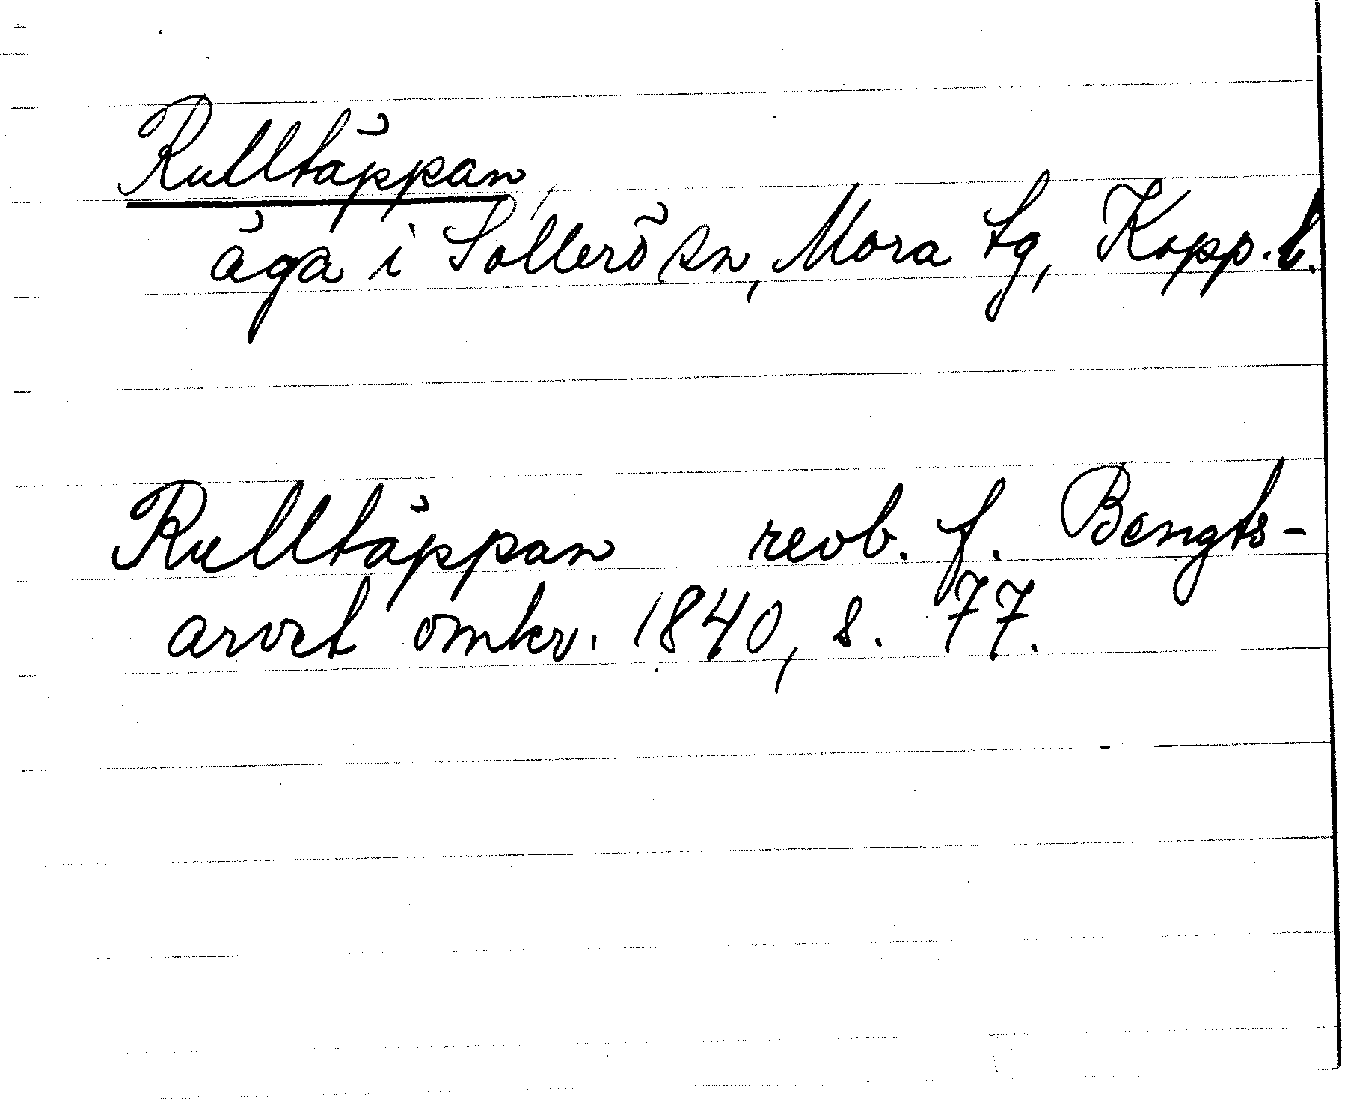 Rulltäppan,
äga i Sollerö sn, Mora tg, Kopp. l.
Rulltäppan revb. f. Bengts-
arvet omkr. 1840, s. 77.